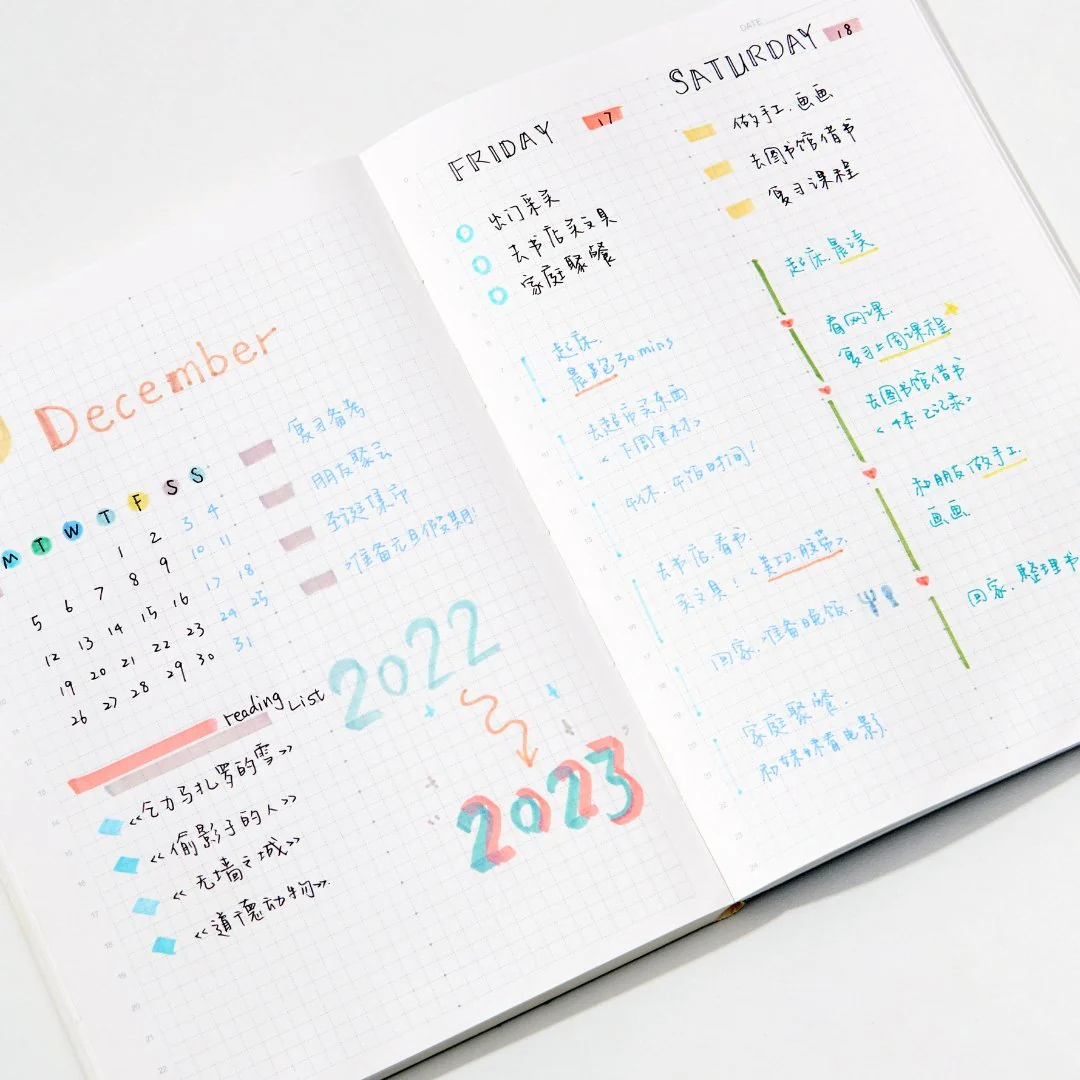 December
M T W T F S S
1 2 3 4
5 6 7 8 9 10 11
12 13 14 15 16 17 18
19 20 21 22 23 24 25
26 27 28 29 30 31
复习备考
朋友聚会
圣诞集市
准备元旦假期!
reading List
<<乞力马扎罗的雪>>
<<偷影子的人>>
<<无墙之城>>
<<道德动物>>
2022
2023
FRIDAY 17
出门采买
去书店买文具
家庭聚餐
起床.
晨跑30mins
去超市买东西
<下周食材>
午休. 午饭时间!
去书店看书.
买文具! <美工刀.胶带>.
回家.准备晚饭.
家庭聚餐.
和妹妹看电影
DATE
SATURDAY 18
做手工.画画
去图书馆借书
复习课程
起床.晨读
看网课.
复习上周课程
去图书馆借书
<4本.已记录>
和朋友做手工.
画画.
回家.整理书